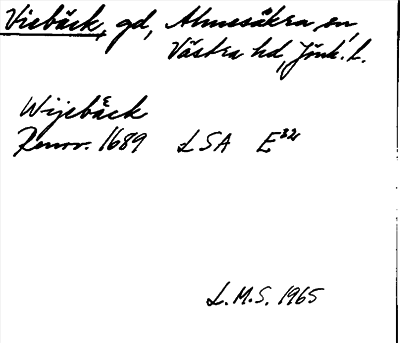 Viebäck, gd, Almesåkra sn,
Västra hd, Jönk. l.
Wijebäck
Renov. 1689 LSA E32
L.M.S. 1965